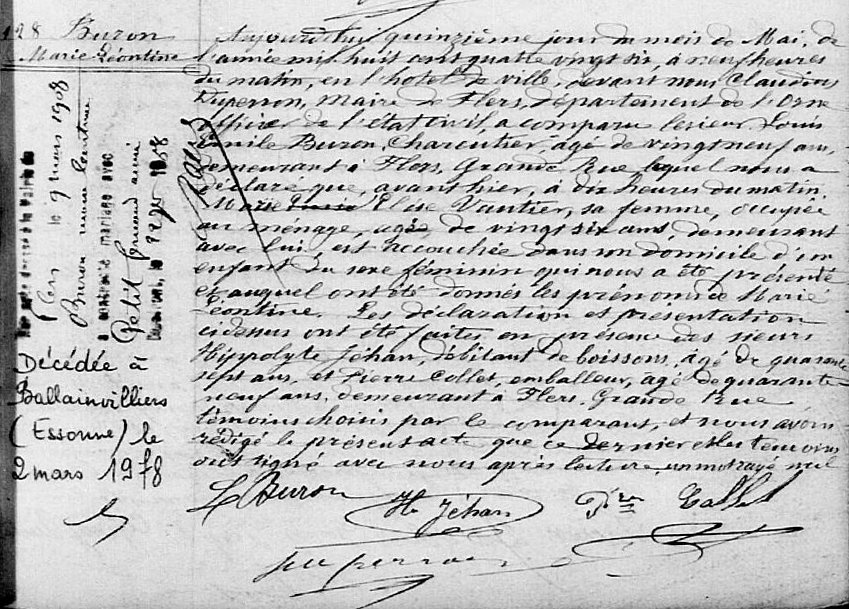 128 Buron
Marie Léontine
Aujourd'hui quinzième jour du mois de Mai, de
l'année mil huit cent quatre vingt six, à neuf heures
du matin, en l'hotel de ville, devant nous Claudius
Duperron, Maire de Flers, département de l'Orne
officier de l'état civil, a comparu le sieur Louis
Emile Buron, Charcutier, âgé de vingt neuf ans,
demeurant à Flers, Grande Rue lequel nous a
déclaré que, avant hier, à dix heures du matin,
Marie Elise Vautier, sa femme, occupée
au ménage, agée de vingt six ans demeurant
avec lui, est accouchée dans son domicile d'un
enfant du sexe féminin qui nous a été présenté
et auquel ont été donnés les prénoms de Marie
Léontine. Les déclaration et présentation
cidessus ont été faites en présence des sieurs
Hippolyte Jéhan, débitant de boissons, âgé de quarante
sept ans, et Pierre Collet, emballeur, âgé de quarante
neuf ans, demeurant à Flers, Grande Rue
témoins choisis par le comparant, et nous avons
rédigé le présent acte que ce dernier et les témoins
ont signé avec nous après lecture, un mot rayé nul
L Buron
Hte Jéhan
Collet
Duperron
le 9 mars 1908
Buron Marie Léontine
a contracté mariage avec
Petit
Décédée à
Ballainvilliers
(Essonne) le
2 mars 1978